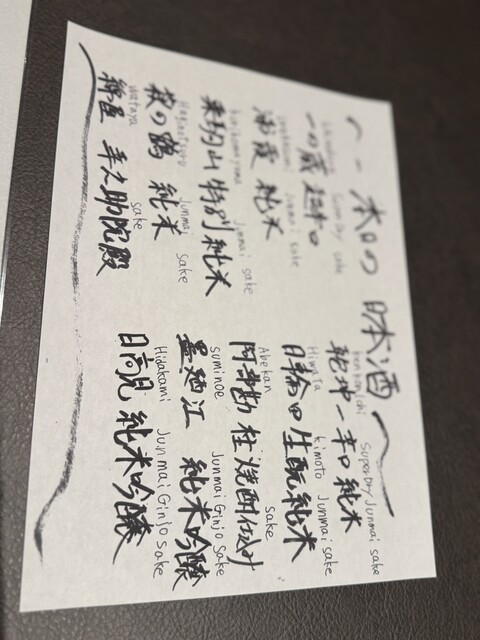 〜本日の 日本酒〜
Ichinokura Superdry sake
一ノ蔵 超辛口
urakasumi Junmai sake
浦霞 純米
kurikomayama Junmai sake
栗駒山 特別純米
Haginotsuru Junmai sake
萩の鶴 純米
wataya sake
綿屋 幸之助院殿
kenkonichi SuperDry Junmai sake
乾坤一 辛口純米
Hiwata kimoto Junmai sake
日輪田 生酛純米
Abekan sake
阿部勘 柱焼酎仕込み
suminoe Junmai Ginjo sake
墨廼江 純米吟醸
Hidakami Junmai Ginjo Sake
日高見 純米吟醸